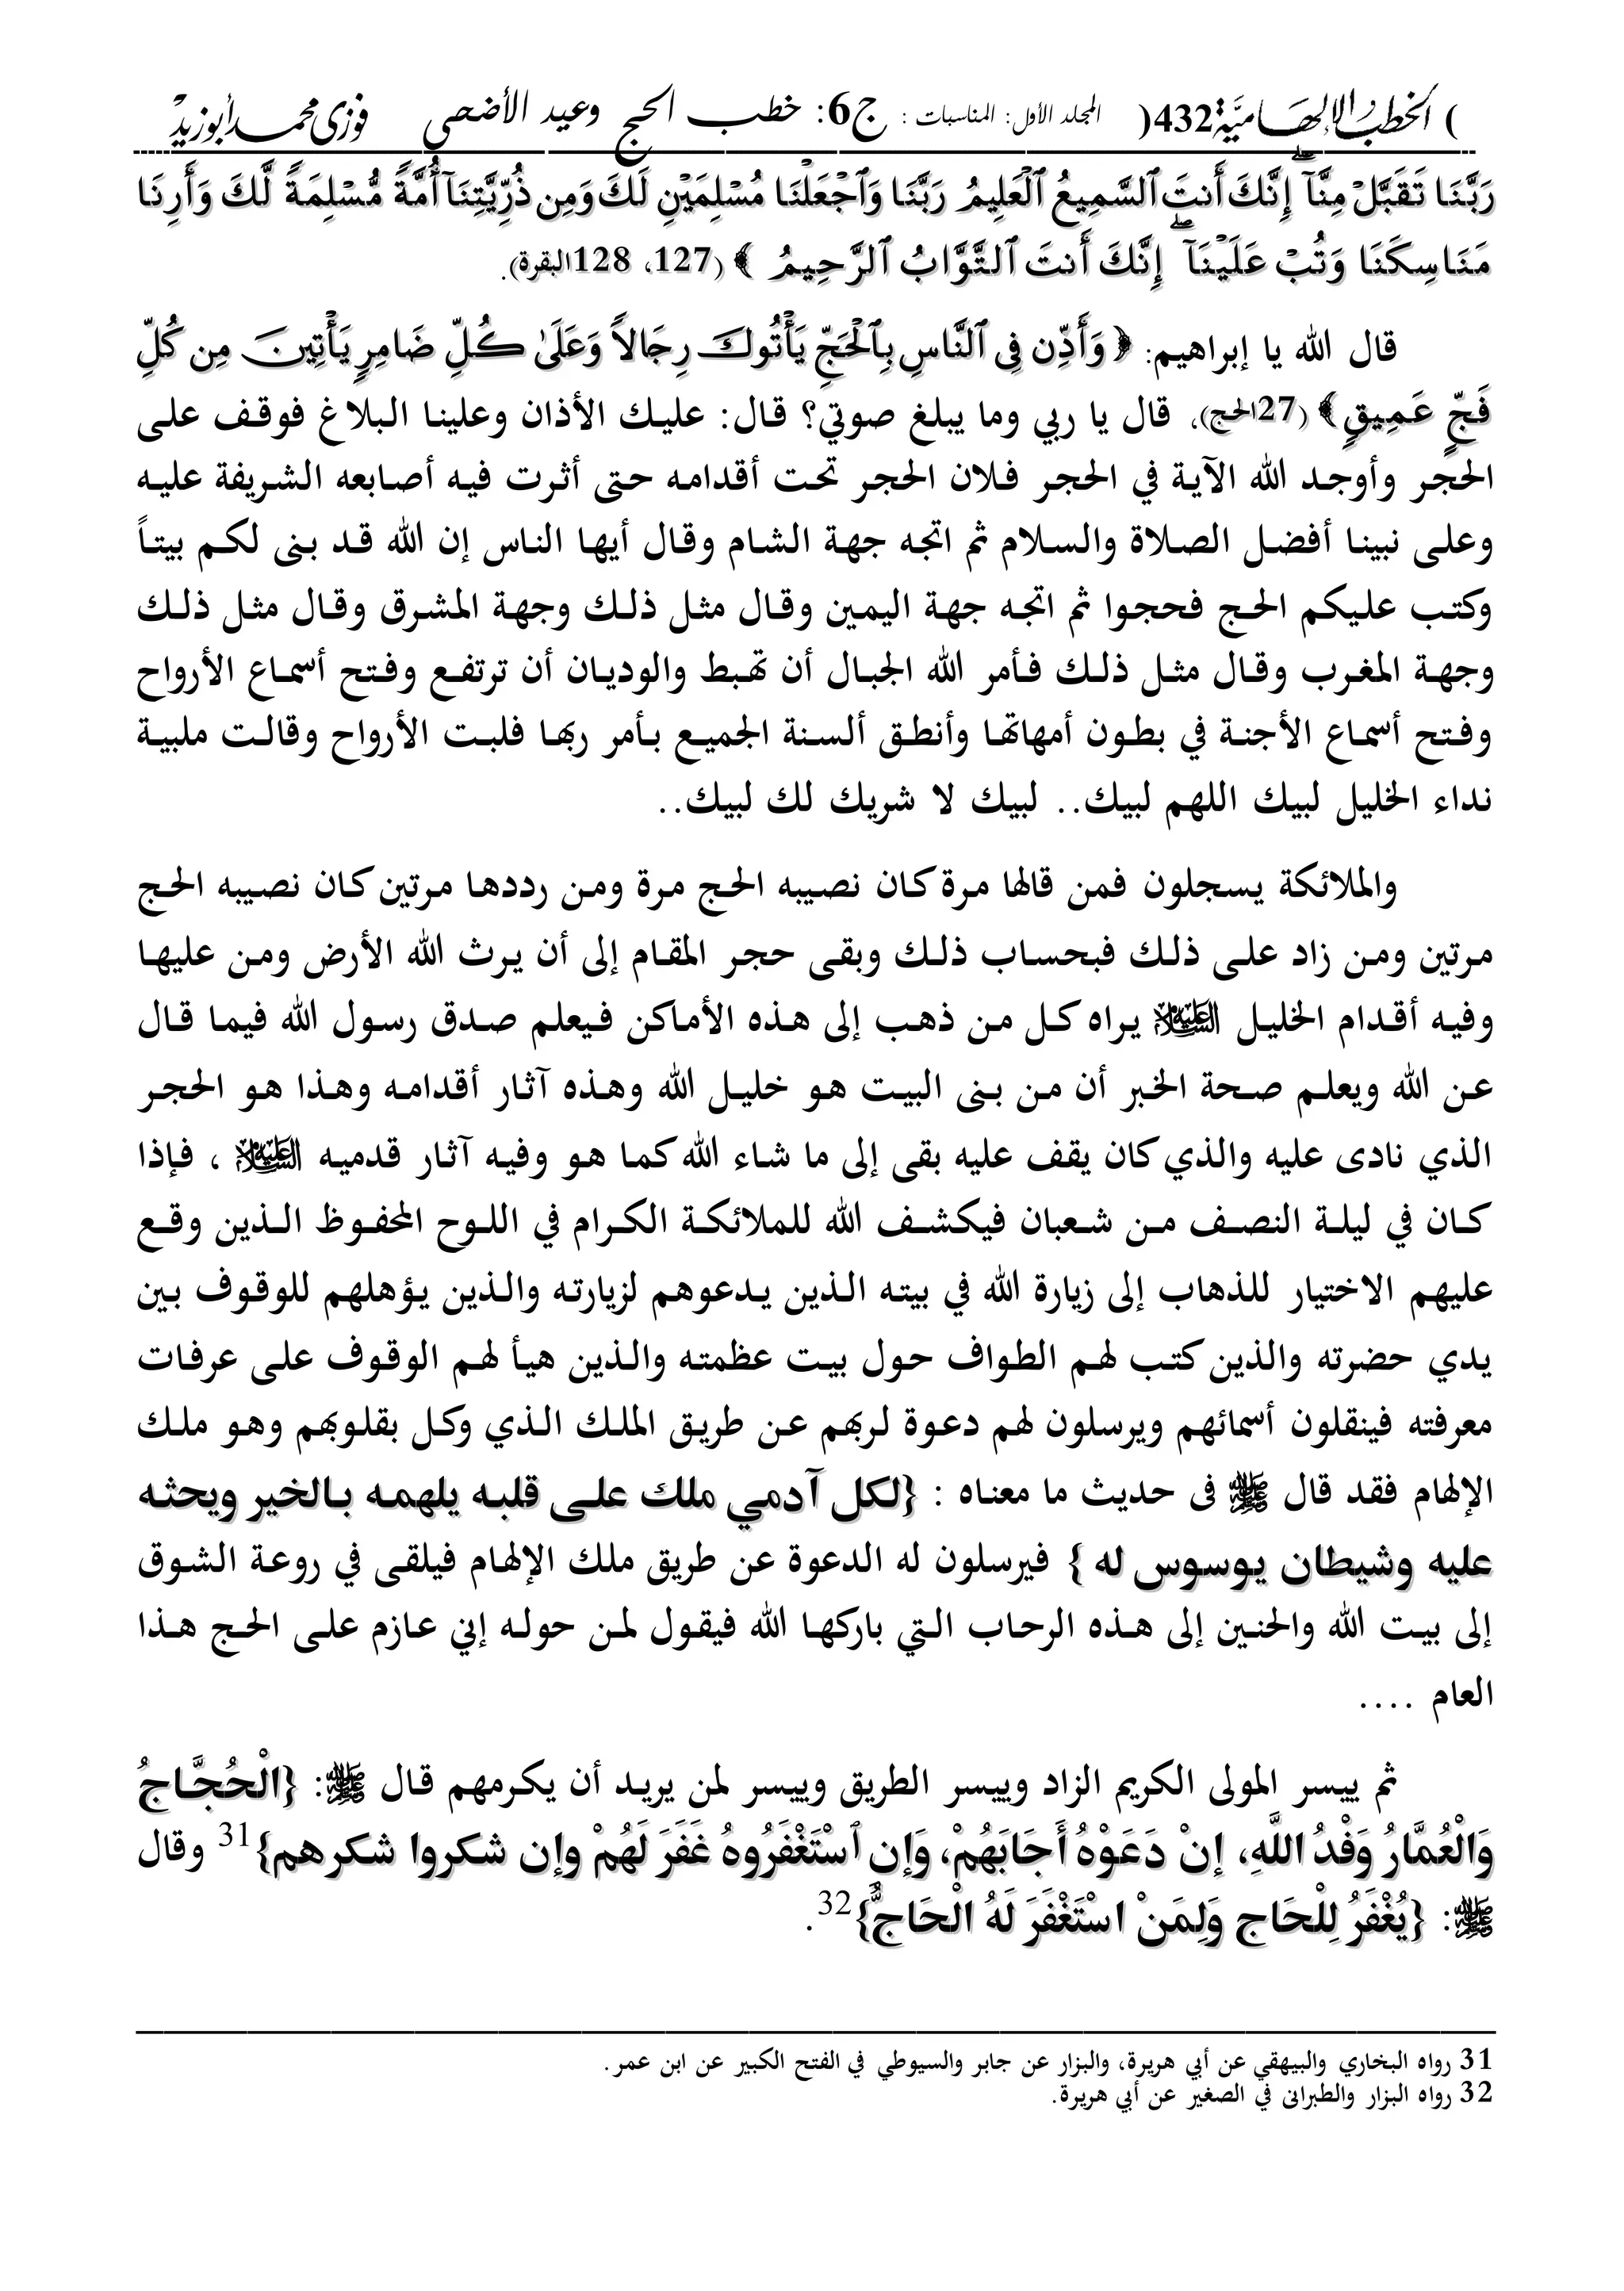 (الخطب الإلهامية432) المجلد الأول: المناسبات : ج6: خطب الحج وعيد الأضحى فوزى محمد أبوزيد
رَبَّنَا تَقَبَّلْ مِنَّآ ۖ إِنَّكَ أَنتَ ٱلسَّمِيعُ ٱلْعَلِيمُ رَبَّنَا وَٱجْعَلْنَا مُسْلِمَيْنِ لَكَ وَمِن ذُرِّيَّتِنَآ أُمَّةً مُّسْلِمَةً لَّكَ وَأَرِنَا
مَنَاسِكَنَا وَتُبْ عَلَيْنَآ ۖ إِنَّكَ أَنتَ ٱلتَّوَّابُ ٱلرَّحِيمُ ﴾ (127، 128البقرة).
قال الله يا إبراهيم: ﴿ وَأَذِّن فِى ٱلنَّاسِ بِٱلْحَجِّ يَأْتُوكَ رِجَالًا وَعَلَىٰ كُلِّ ضَامِرٍ يَأْتِينَ مِن كُلِّ
فَجٍّ عَمِيقٍ ﴾ (27الحج)، قال يا ربي وما يبلغ صوتي؟ قال: عليك الأذان وعلينا البلاغ فوقف على
الحجر وأوجد الله الآية في الحجر فلان الحجر تحت أقدامه حتى أثرت فيه أصابعه الشريفة عليه
وعلى نبينا أفضل الصلاة والسلام ثم اتجه جهة الشام وقال أيها الناس إن الله قد بنى لكم بيتاً
وكتب عليكم الحج فحجوا ثم اتجه جهة اليمين وقال مثل ذلك وجهة المشرق وقال مثل ذلك
وجهة المغرب وقال مثل ذلك فأمر الله الجبال أن تهبط والوديان أن ترتفع وفتح أسماع الأرواح
وفتح أسماع الأجنة في بطون أمهاتها وأنطق ألسنة الجميع بأمر ربها فلبت الأرواح وقالت ملبية
نداء الخليل لبيك اللهم لبيك.. لبيك لا شريك لك لبيك..
والملائكة يسجلون فمن قالها مرة كان نصيبه الحج مرة ومن رددها مرتين كان نصيبه الحج
مرتين ومن زاد على ذلك فبحساب ذلك وبقى حجر المقام إلى أن يرث الله الأرض ومن عليها
وفيه أقدام الخليل عليه السلام يراه كل من ذهب إلى هذه الأماكن فيعلم صدق رسول الله فيما قال
عن الله ويعلم صحة الخبر أن من بنى البيت هو خليل الله وهذه آثار أقدامه وهذا هو الحجر
الذي نادى عليه والذي كان يقف عليه بقى إلى ما شاء الله كما هو وفيه آثار قدميه عليه السلام ، فإذا
كان في ليلة النصف من شعبان فيكشف الله للملائكة الكرام في اللوح المحفوظ الذين وقع
عليهم الاختيار للذهاب إلى زيارة الله في بيته الذين يدعوهم لزيارته والذين يؤهلهم للوقوف بين
يدي حضرته والذين كتب لهم الطواف حول بيت عظمته والذين هيأ لهم الوقوف على عرفات
معرفته فينقلون أسمائهم ويرسلون لهم دعوة لربهم عن طريق الملك الذي وكل بقلوبهم وهو ملك
الإلهام فقد قال ﷺ فى حديث ما معناه : {لكل آدمي ملك على قلبه يلهمه بالخير ويحثه
عليه وشيطان يوسوس له } فيرسلون له الدعوة عن طريق ملك الإلهام فيلقى في روعة الشوق
إلى بيت الله والحنين إلى هذه الرحاب التي باركها الله فيقول لمن حوله إني عازم على الحج هذا
العام ....
ثم ييسر المولى الكريم الزاد وييسر الطريق وييسر لمن يريد أن يكرمهم قال ﷺ: {الْحُجَّاجُ
وَالْعُمَّارُ وَفْدُ اللَّهِ، إِنْ دَعَوْهُ أَجَابَهُمْ، وَإِنِ ٱسْتَغْفَرُوهُ غَفَرَ لَهُمْ وإن شكروا شكرهم}31 وقال
ﷺ: {يُغْفَرُ لِلْحَاجِ وَلِمَنْ اسْتَغْفَرَ لَهُ الْحَاجُّ}32.
31 رواه البخاري والبيهقي عن أبي هريرة، والبزار عن جابر والسيوطي في الفتح الكبير عن ابن عمر.
32 رواه البزار والطبرانى في الصغير عن أبي هريرة.